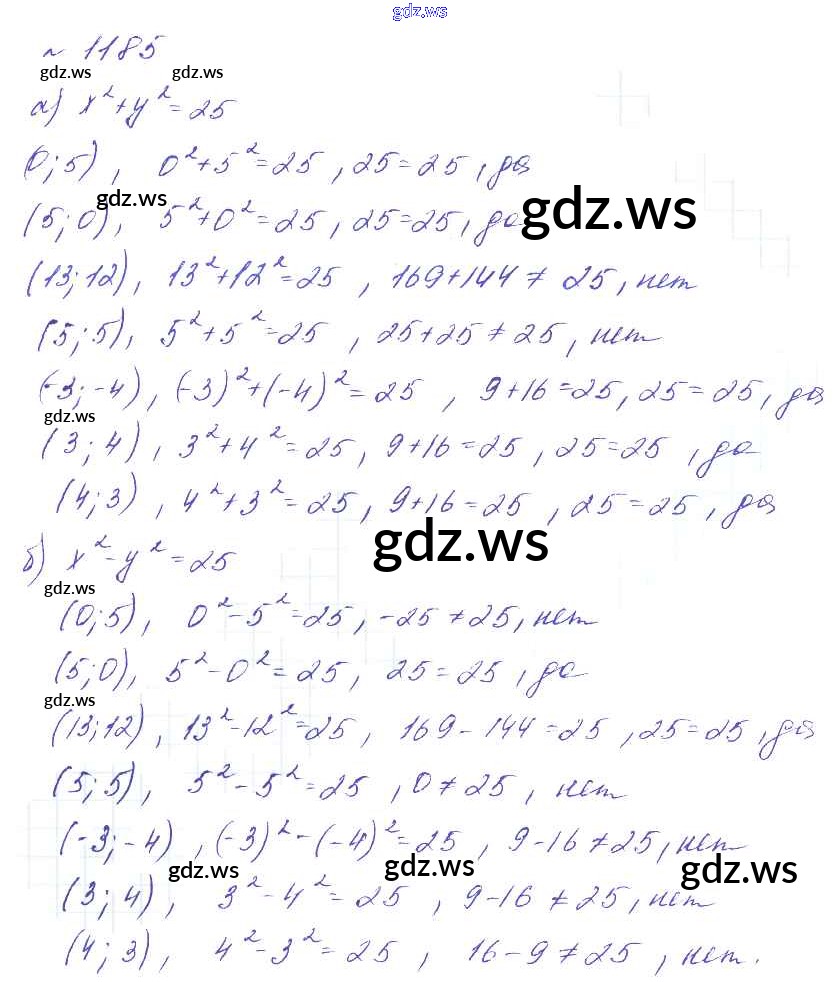 gdz.ws
№ 1185
gdz.ws gdz.ws
а) x²+y²=25
(0;5), 0²+5²=25, 25=25, да
gdz.ws
gdz.ws
(5;0), 5²+0²=25, 25=25, да
(13;12), 13²+12²=25, 169+144≠25, нет
(5;5), 5²+5²=25, 25+25≠25, нет
(-3;-4), (-3)²+(-4)²=25, 9+16=25, 25=25, да
gdz.ws
(3;4), 3²+4²=25, 9+16=25, 25=25, да
(4;3), 4²+3²=25, 9+16=25, 25=25, да
gdz.ws
б) x²-y²=25
gdz.ws
(0;5), 0²-5²=25, -25≠25, нет
(5;0), 5²-0²=25, 25=25, да
gdz.ws
(13;12), 13²-12²=25, 169-144=25, 25=25, да
(5;5), 5²-5²=25, 0≠25, нет
(-3;-4), (-3)²-(-4)²=25, 9-16≠25, нет
gdz.ws gdz.ws gdz.ws
(3;4), 3²-4²=25, 9-16≠25, нет
(4;3), 4²-3²=25, 16-9≠25, нет.